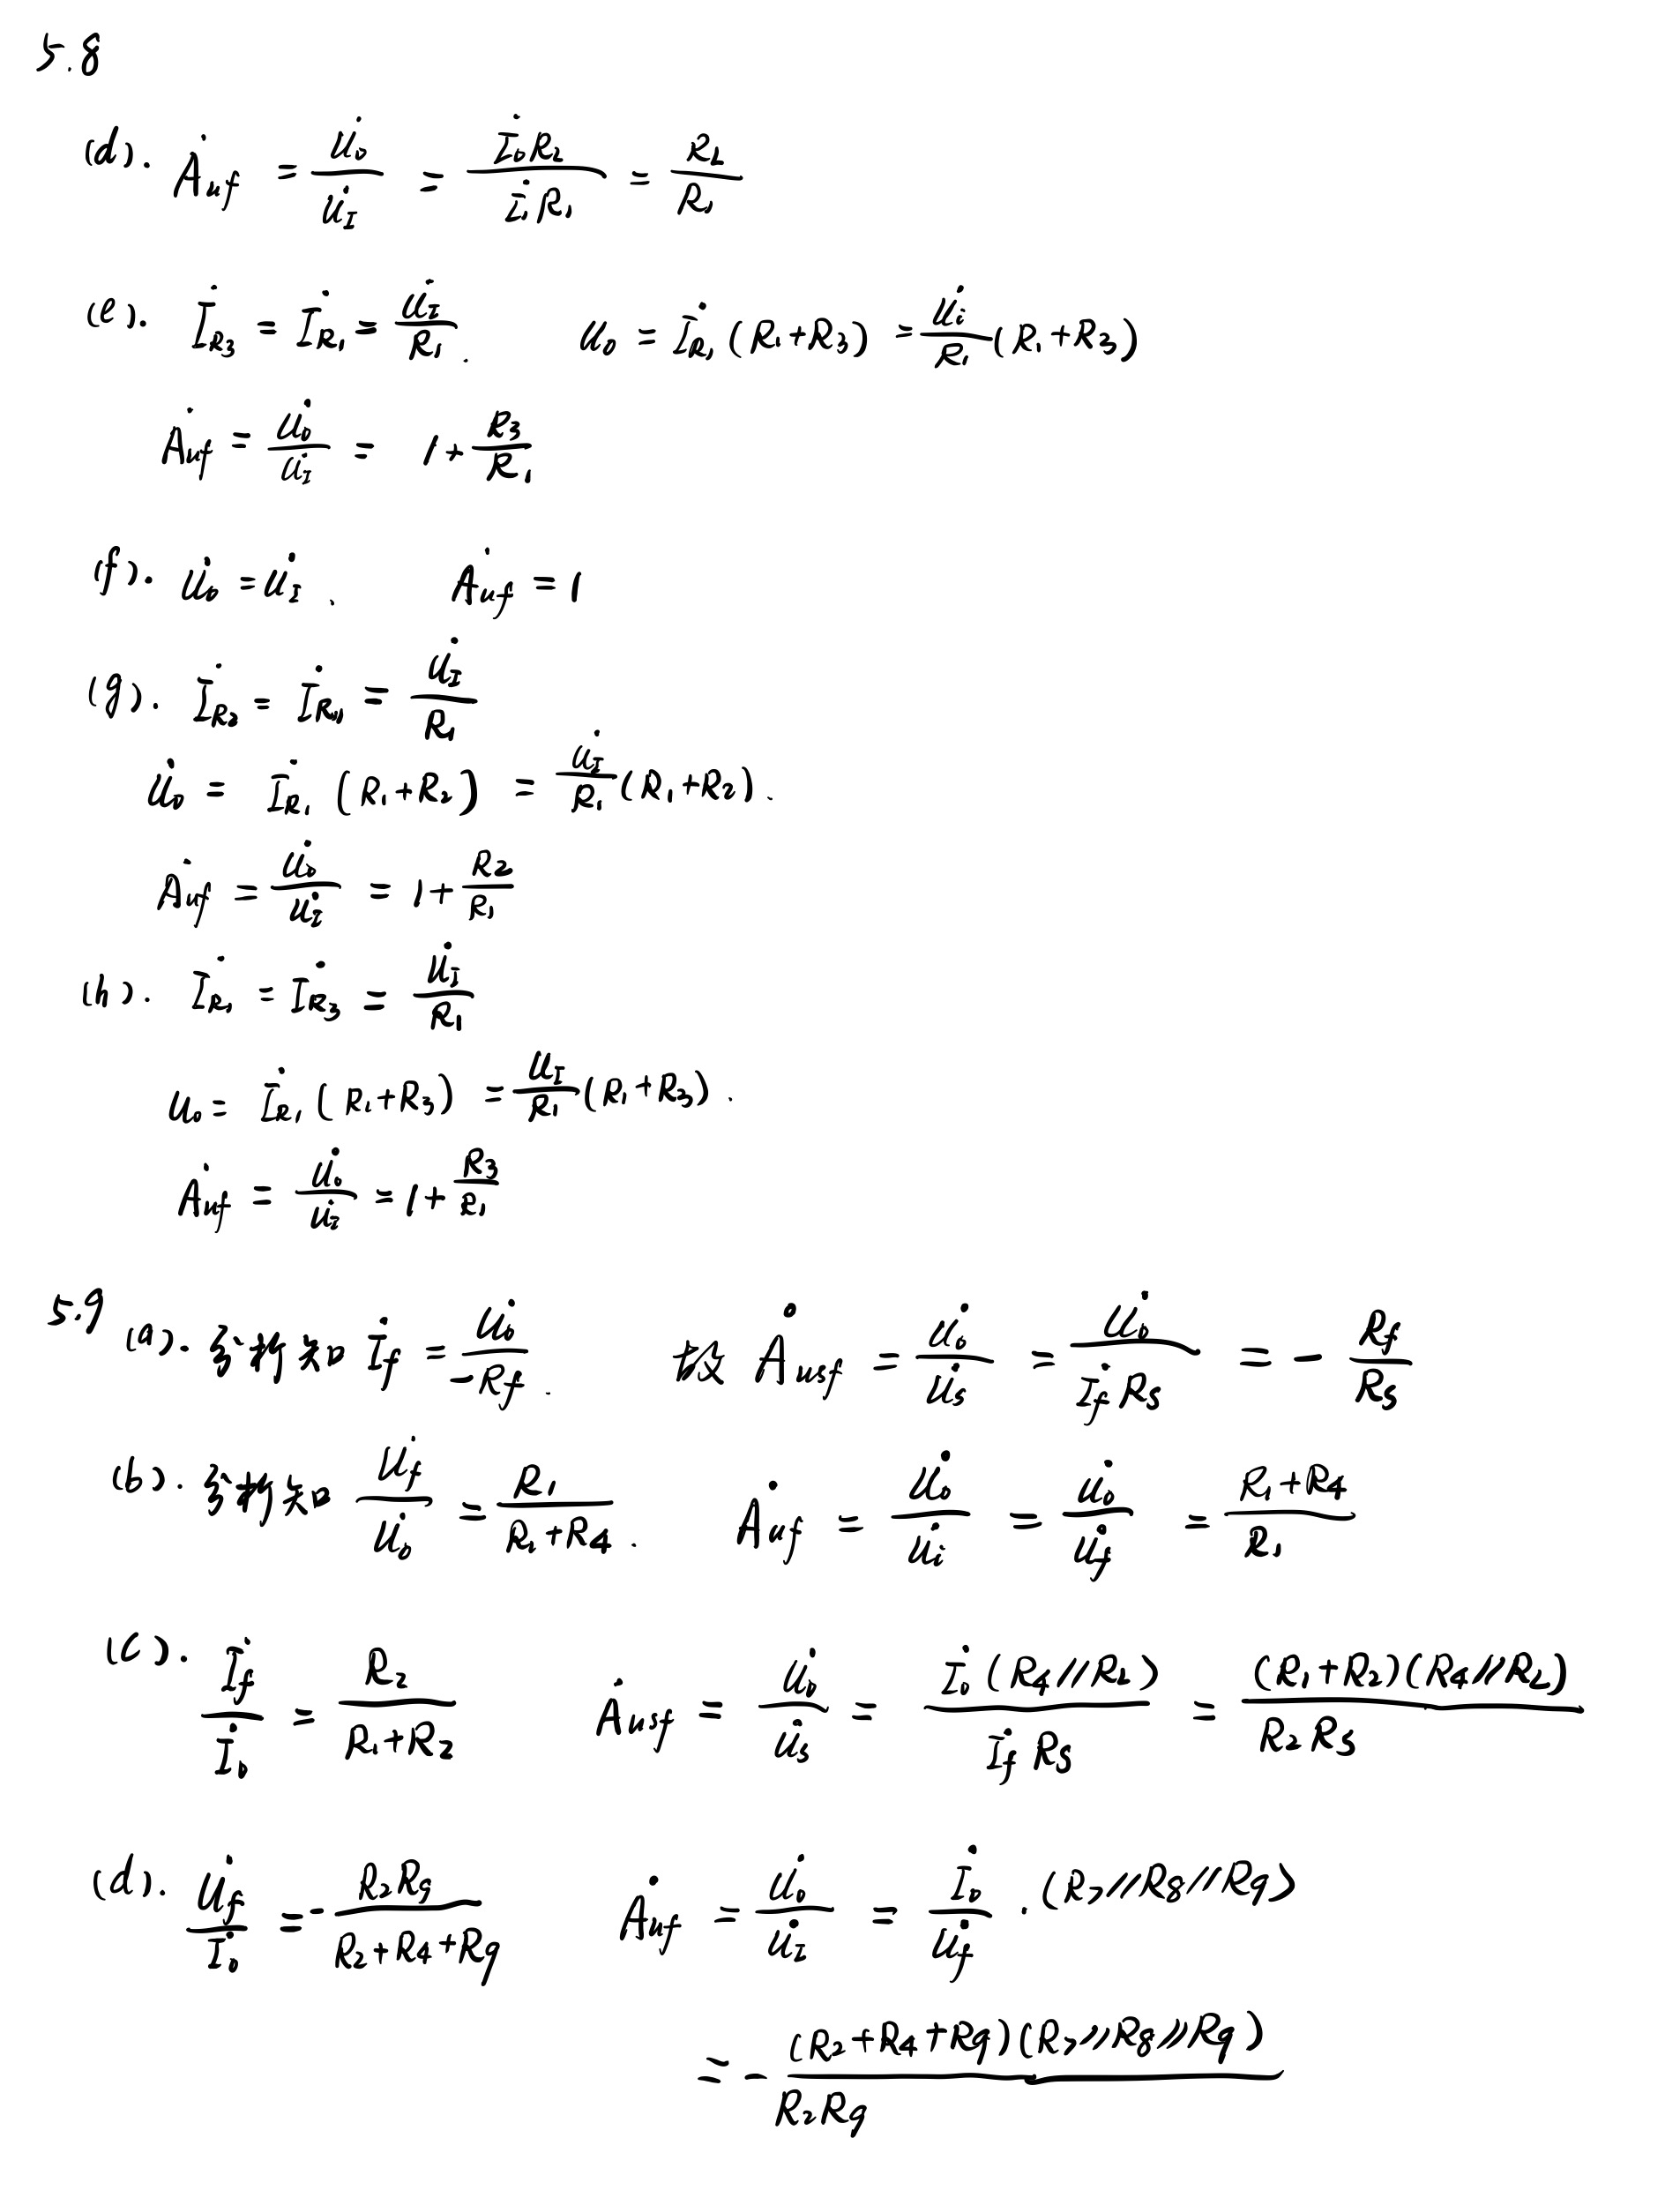 5.8
(d).Ȧuf = U̇o/U̇I = İoR2/İ1R1 = RL/R1
(e). İR3 = İR1 = U̇I/R1. Uo = İR1(R1+R3) = U̇i/R1(R1+R3)
Ȧuf = U̇o/U̇I = 1+R3/R1
(f). U̇o = U̇I. Ȧuf = 1
(g). İR2 = İR1 = U̇I/R1
U̇o = İR1(R1+R2) = U̇I/R1(R1+R2).
Ȧuf = U̇o/U̇I = 1+R2/R1
(h). İR1 = İR3 = U̇I/R1
Uo = İR1(R1+R3) = UI/R1(R1+R3).
Ȧuf = U̇o/U̇I = 1+R3/R1
5.9 (a). 分析知 İf = U̇o/-Rf. 故 Ȧusf = U̇o/U̇s = U̇o/İfRs = -Rf/Rs
(b). 分析知 U̇f/U̇o = R1/R1+R4. Ȧuf = U̇o/U̇i = U̇o/U̇f = R1+R4/R1
(c). İf/İo = R2/R1+R2 Ȧusf = U̇o/U̇s = İo(R4//RL)/İfRs = (R1+R2)(R4//RL)/R2Rs
(d). U̇f/İo = -R2R9/R2+R4+R9 Ȧuf = U̇o/U̇I = İo/U̇f·(R7//R8//R9)
= -(R2+R4+R9)(R7//R8//R9)/R2R9